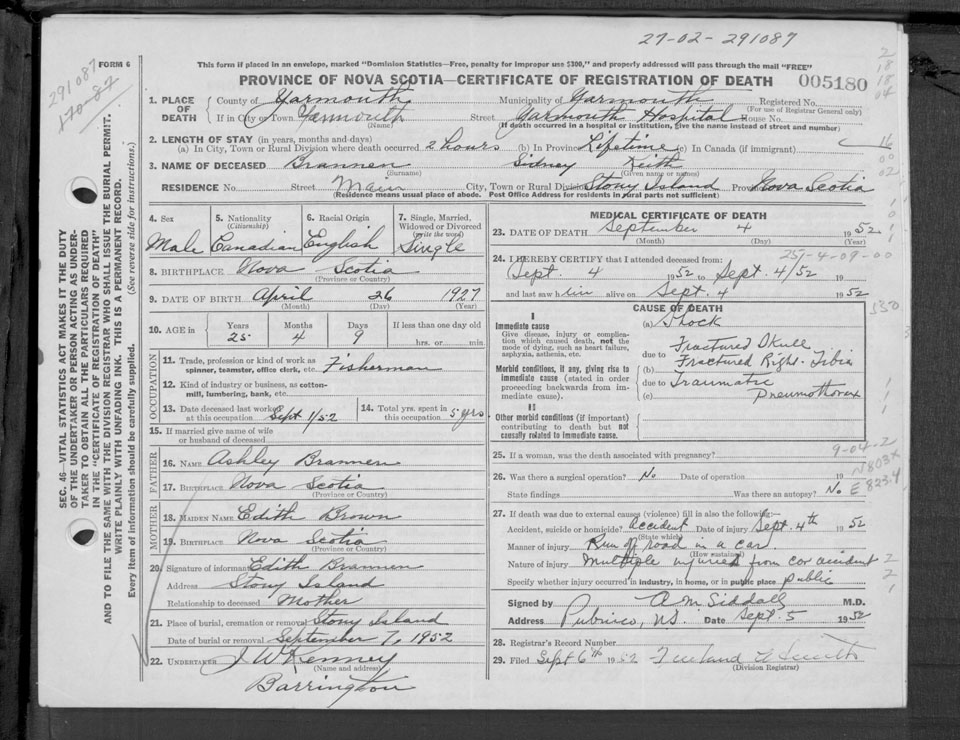 27-02-291087
This form if placed in an envelope, marked "Dominion Statistics—Free, penalty for improper use $300," and properly addressed will pass through the mail "FREE"
FORM 6
PROVINCE OF NOVA SCOTIA—CERTIFICATE OF REGISTRATION OF DEATH 005180
291087
170-87
SEC. 46—VITAL STATISTICS ACT MAKES IT THE DUTY
OF THE UNDERTAKER OR PERSON ACTING AS UNDER-
TAKER TO OBTAIN ALL THE PARTICULARS REQUIRED
IN THE "CERTIFICATE OF REGISTRATION OF DEATH"
AND TO FILE THE SAME WITH THE DIVISION REGISTRAR WHO SHALL ISSUE THE BURIAL PERMIT.
WRITE PLAINLY WITH UNFADING INK. THIS IS A PERMANENT RECORD.
Every item of information should be carefully supplied. (See reverse side for instructions.)
1. PLACE OF DEATH
County of Yarmouth Municipality of Yarmouth Registered No.
(For use of Registrar General only)
If in City or Town Yarmouth Street Yarmouth Hospital House No.
(Name) (If death occurred in a hospital or institution, give the name instead of street and number)
2. LENGTH OF STAY (in years, months and days)
(a) In City, Town or Rural Division where death occurred 2 hours (b) In Province Lifetime (c) In Canada (if immigrant)
3. NAME OF DECEASED Brannen Sidney Keith
(Surname) (Given name or names)
RESIDENCE No. Street Main City, Town or Rural Division Stony Island Province Nova Scotia
(Residence means usual place of abode. Post Office Address for residents in rural parts not sufficient)
4. Sex
Male
5. Nationality
(Citizenship)
Canadian
6. Racial Origin
English
7. Single, Married,
Widowed or Divorced
(write the word)
Single
8. BIRTHPLACE Nova Scotia
(Province or Country)
9. DATE OF BIRTH April 26 1927
(Month) (Day) (Year)
10. AGE in
Years Months Days If less than one day old
25 4 9 hrs. or min.
OCCUPATION
11. Trade, profession or kind of work as
spinner, teamster, office clerk, etc. Fisherman
12. Kind of industry or business, as cotton-
mill, lumbering, bank, etc.
13. Date deceased last worked
at this occupation Sept 1/52
14. Total yrs. spent in
this occupation 5 yrs.
15. If married give name of wife
or husband of deceased
FATHER
16. NAME Ashley Brannen
17. BIRTHPLACE Nova Scotia
(Province or Country)
MOTHER
18. MAIDEN NAME Edith Brown
19. BIRTHPLACE Nova Scotia
(Province or Country)
20. Signature of informant Edith Brannen
Address Stony Island
Relationship to deceased Mother
21. Place of burial, cremation or removal Stony Island
Date of burial or removal September 7, 1952
22. UNDERTAKER J W Kenney
(Name and address)
Barrington
MEDICAL CERTIFICATE OF DEATH
23. DATE OF DEATH September 4 1952
(Month) (Day) (Year)
251-4-09-00
24. I HEREBY CERTIFY that I attended deceased from:
Sept. 4 1952 to Sept. 4/52 19
and last saw him alive on Sept. 4 1952
CAUSE OF DEATH
I
Immediate cause
Give disease, injury or complica-
tion which caused death, not the
mode of dying, such as heart failure,
asphyxia, asthenia, etc.
Morbid conditions, if any, giving rise to
immediate cause (stated in order
proceeding backwards from im-
mediate cause).
II
Other morbid conditions (if important)
contributing to death but not
causally related to immediate cause.
(a) Shock
due to Fractured Skull
(b) Fractured Right Tibia
due to Traumatic
(c) Pneumothorax
25. If a woman, was the death associated with pregnancy?
9-04-2
N803X
26. Was there a surgical operation? No Date of operation 19
State findings Was there an autopsy? No E 823.4
27. If death was due to external causes (violence) fill in also the following:—
Accident, suicide or homicide? accident Date of injury Sept. 4th 1952
(State which)
Manner of injury Run off road in a car.
(How sustained)
Nature of injury Multiple injuries from car accident
Specify whether injury occurred in industry, in home, or in public place public
Signed by A M Siddall M.D.
Address Pubnico, N.S. Date Sept. 5 1952
28. Registrar's Record Number
29. Filed Sept 6th 1952
(Division Registrar)